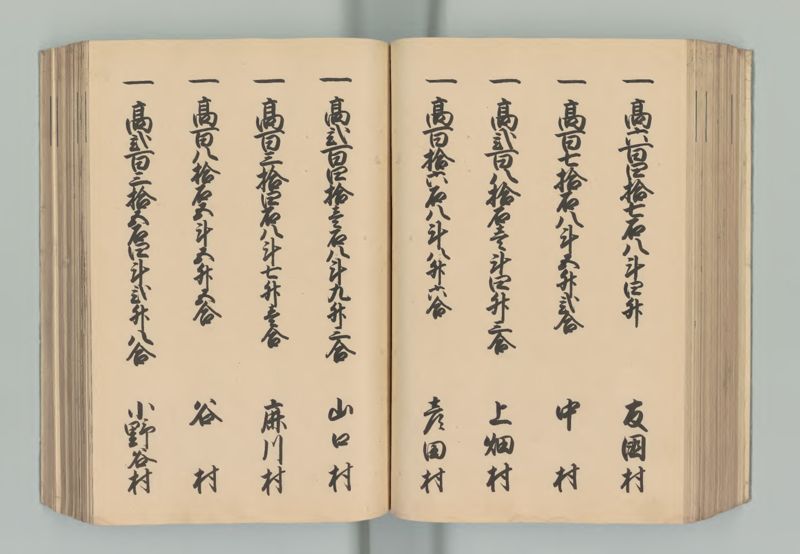 一高六百四拾七石八斗四升 友国村
一高百七拾石八斗五升弐合 中村
一高弐百八拾石壱斗四升三合 上畑村
一高百拾六石八斗八升六合 彦田村
一高弐百四拾壱石八斗九升三合 山口村
一高百三拾四石八斗七升壱合 麻川村
一高百八拾石五斗五升五合 谷村
一高弐百三拾五石四斗弐升八合 小野谷村